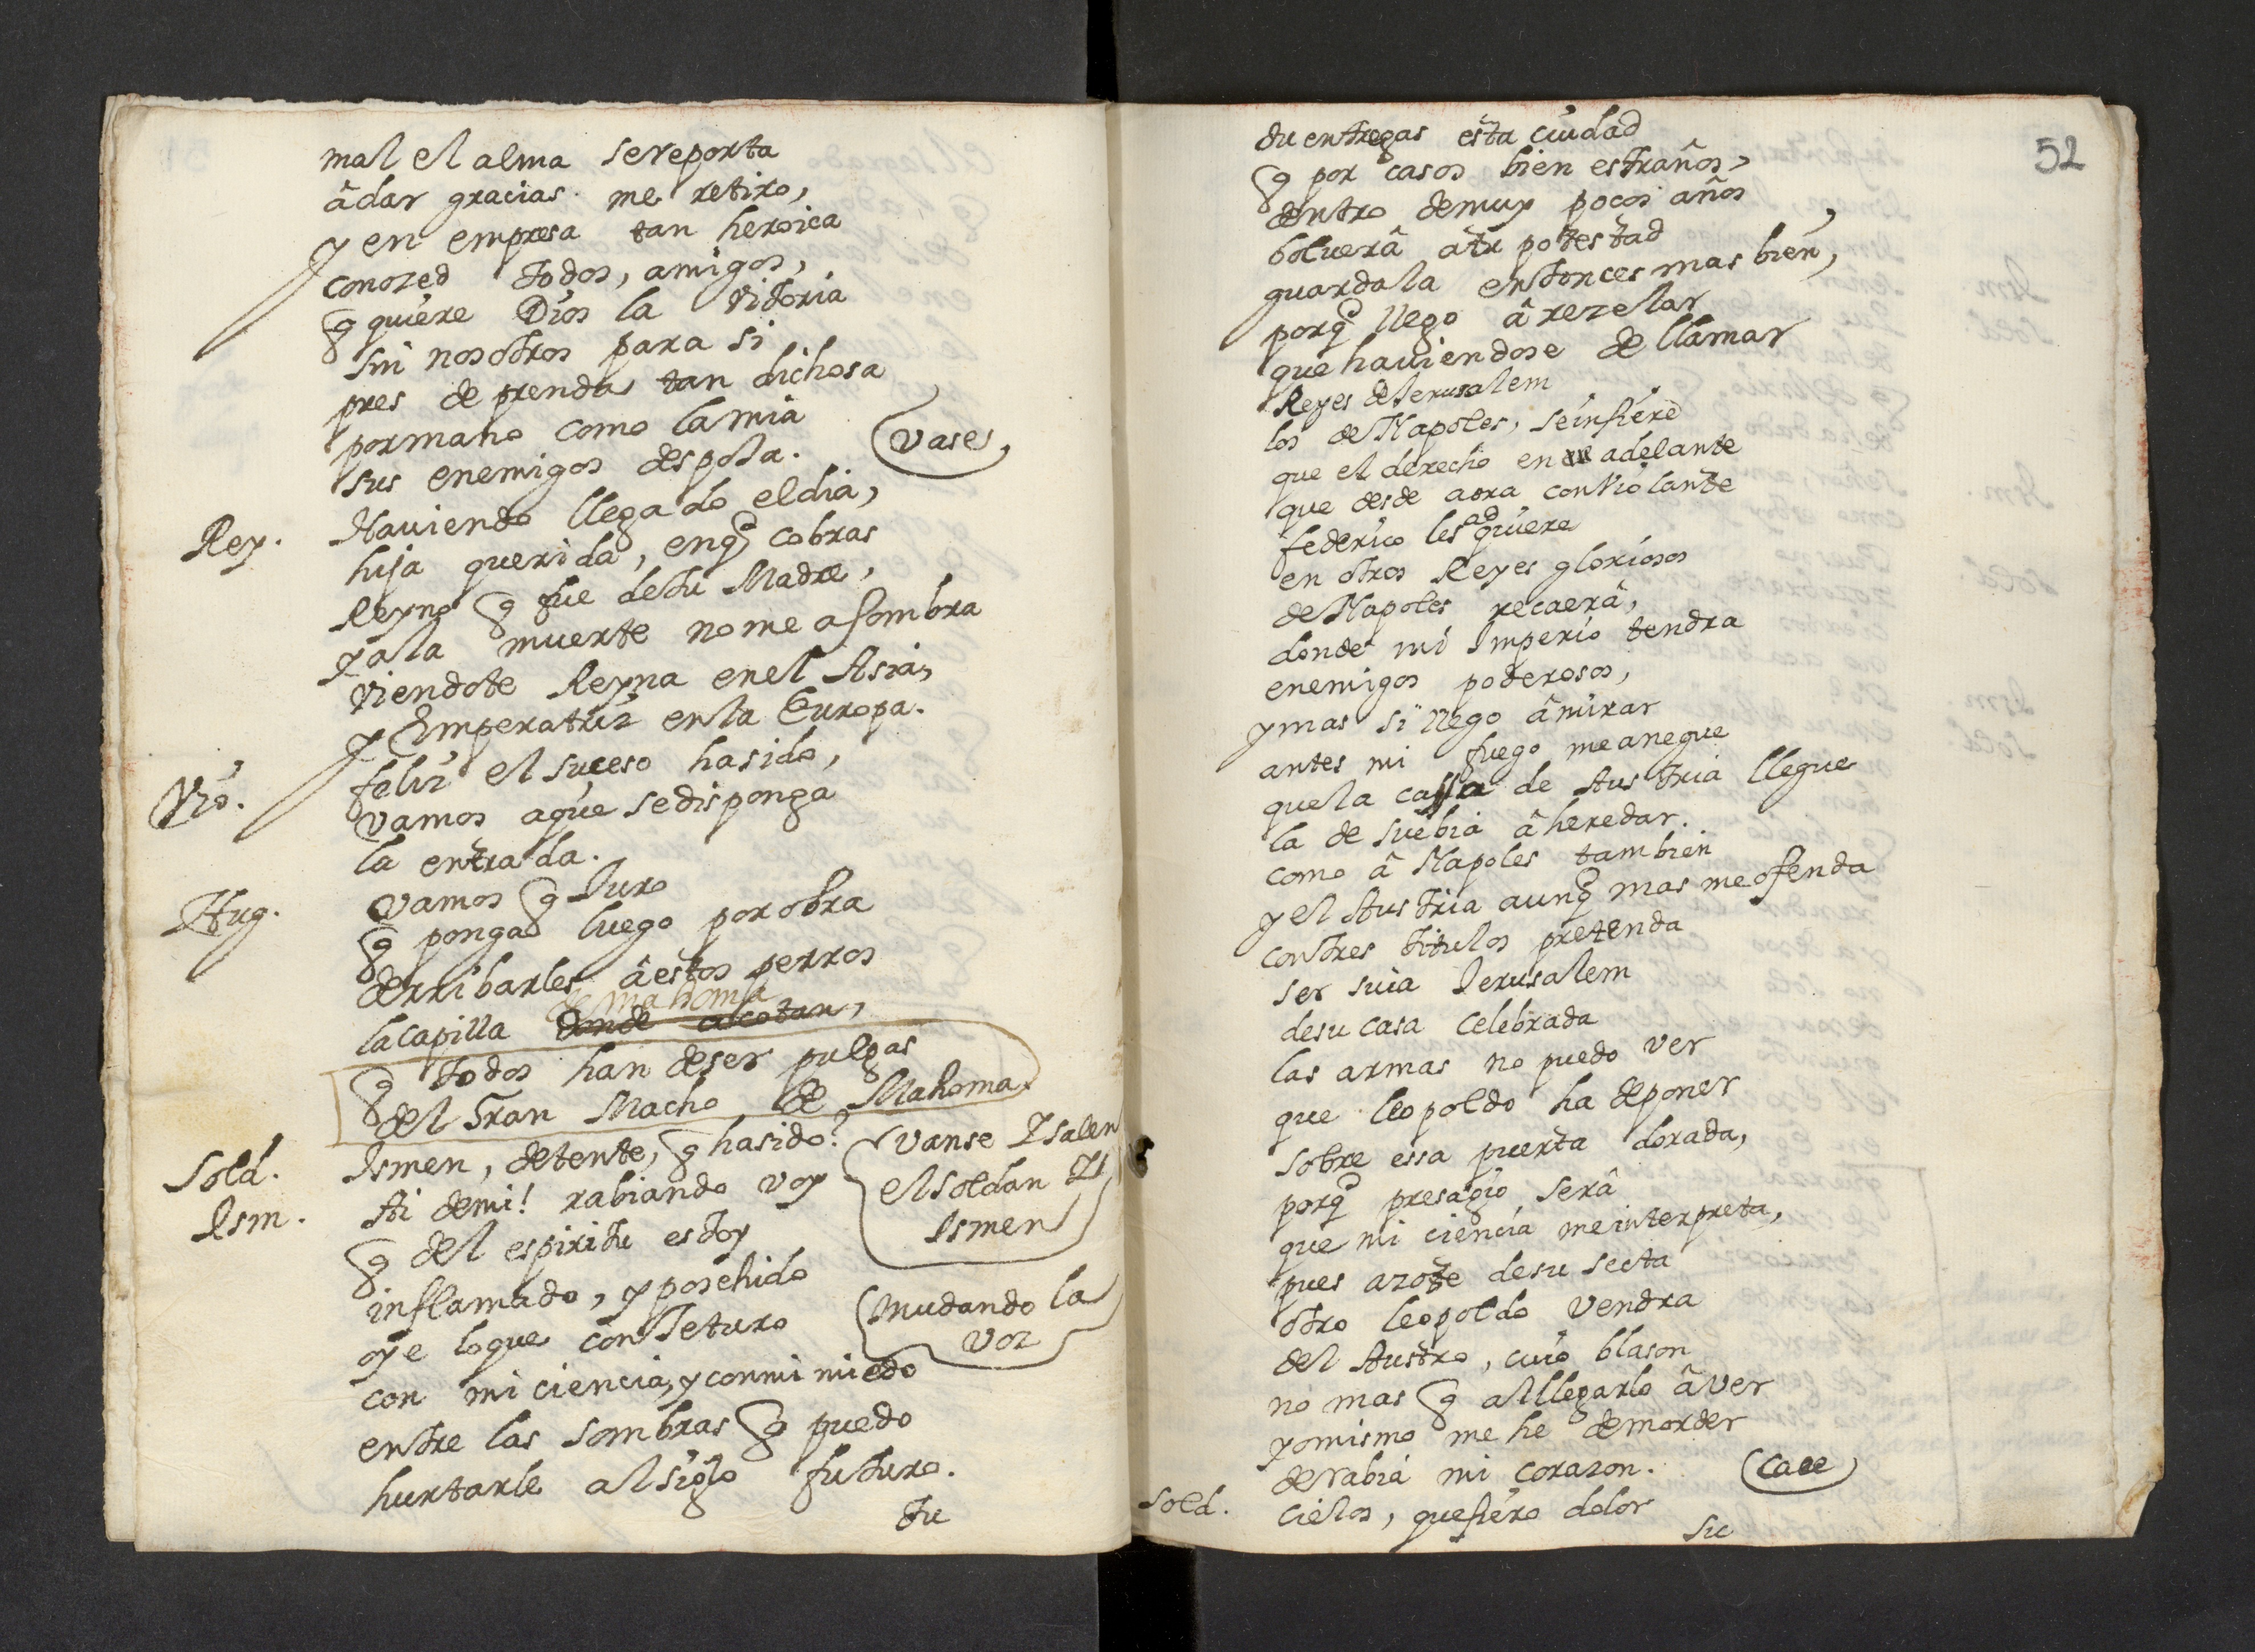 mal el alma sereporta
âdar gracias me retiro,
y en empresa tan heroica
conozed todos, amigos,
q̃ quiere Dios la Vitoria
sin nosotros para si
pres de prendas tan dichosa
pormano como lamia
sus enemigos despoja. (vase,
Rey. Haviendo llegado eldia,
hija querida, enq̃ cobras
Reyno q̃ fue detu Madre,
yala muerte nome asombra
viendote Reyna enel Asia,
y Emperatriz enla Europa.
Vio. feliz el suceso hasido,
vamos aque sedisponga
la entrada.
Hug. Vamos q̃ Juro
q̃ ponga luego por obra
derribarles âestos perros
de mahoma
lacapilla donde
q̃ todos han deser pulgas
del Gran Macho de Mahoma.
Sold. Ismen, detente, q̃ hasido? (vanse Isalen
Ism. Ai demi! rabiando voy elsoldan Is
q̃ del espiritu estoy Ismen)
inflamado, y posehido
oye loque conJeturo (mudando la
voz
con mi ciencia, y conmi miedo
entre las sombras q̃ puedo
hurtarle alsiglo futuro.
tu
52
tu entregas esta ciudad
q̃ por casos bien estraños,
dentro demuy pocos años
bolverâ atu potestad
guardala entonces mas bien,
porq̃ llego â rezelar
que haviendose de llamar
Reyes deJerusalem
los deNapoles, seinfiere
que el derecho en adelante
que desde aora conViolante
federico les adquiere
en otros Reyes gloriosos
deNapoles recaerâ,
donde mi Imperio tendra
enemigos poderosos,
ymas si llego âmirar
antes mi fuego meanegue
quela cassa de Austria llegue
la de suebia âheredar.
como â Napoles tambien
y el Austria aunq̃ mas meofenda
contres titulos pretenda
ser suia Jerusalem
desu casa celebrada
las armas no puedo ver
que leopoldo ha deponer
sobre essa puerta dorada,
porq̃ presagio serâ
que mi ciencia meinterpreta,
pues azote desu secta
otro leopoldo vendra
del Austro, cuio blason
no mas q̃ alllegarlo âver
yomismo me he demorder
derabia mi corazon. (cae)
Sold. cielos, quefiero dolor
su